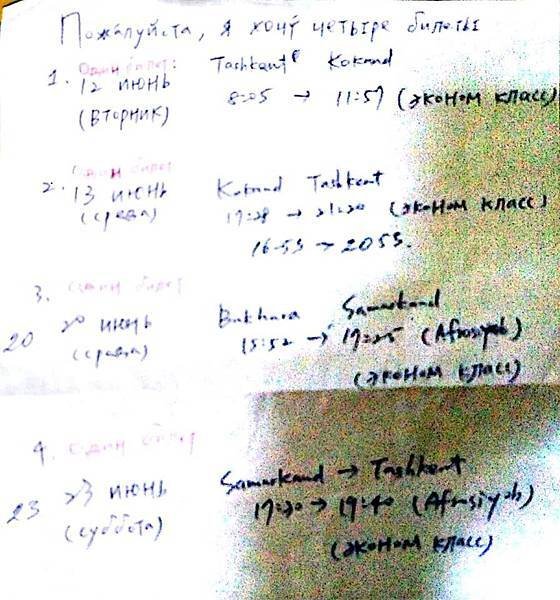 Пожалуйста, я хочу четыре билеты
1. Один билет:
12 июнь Tashkent Kokand
(вторник) 8:05 → 11:57 (эконом класс)
2. Один билет
13 июнь Kokand Tashkent
(среда) 17:28 → 21:20 (эконом класс)
16:55 → 20:55.
3. Один билет
20 20 июнь Bukhara Samarkand
(среда) 15:52 → 17:25 (Afrosiyob)
(эконом класс)
4. Один билет
23 23 июнь Samarkand → Tashkent
(суббота) 17:30 → 19:40 (Afrosiyob)
(эконом класс)